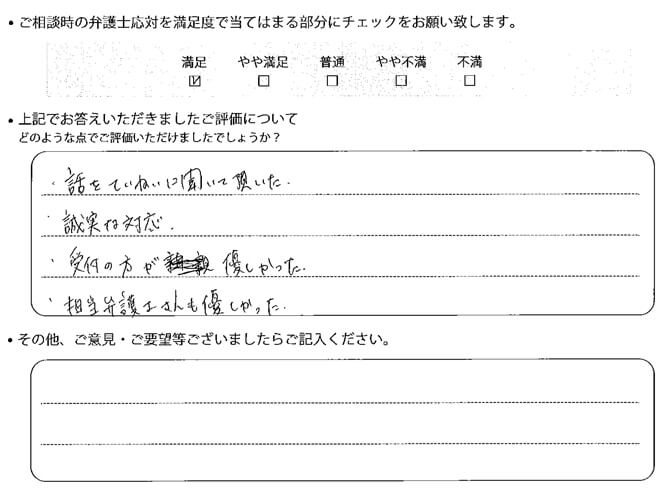 • ご相談時の弁護士応対を満足度で当てはまる部分にチェックをお願い致します。
満足 やや満足 普通 やや不満 不満
☑ ☐ ☐ ☐ ☐
• 上記でお答えいただきましたご評価について
どのような点でご評価いただけましたでしょうか？
・話をていねいに聞いて頂いた.
・誠実な対応.
・受付の方が 優しかった.
・担当弁護士さんも優しかった.
• その他、ご意見・ご要望等ございましたらご記入ください。